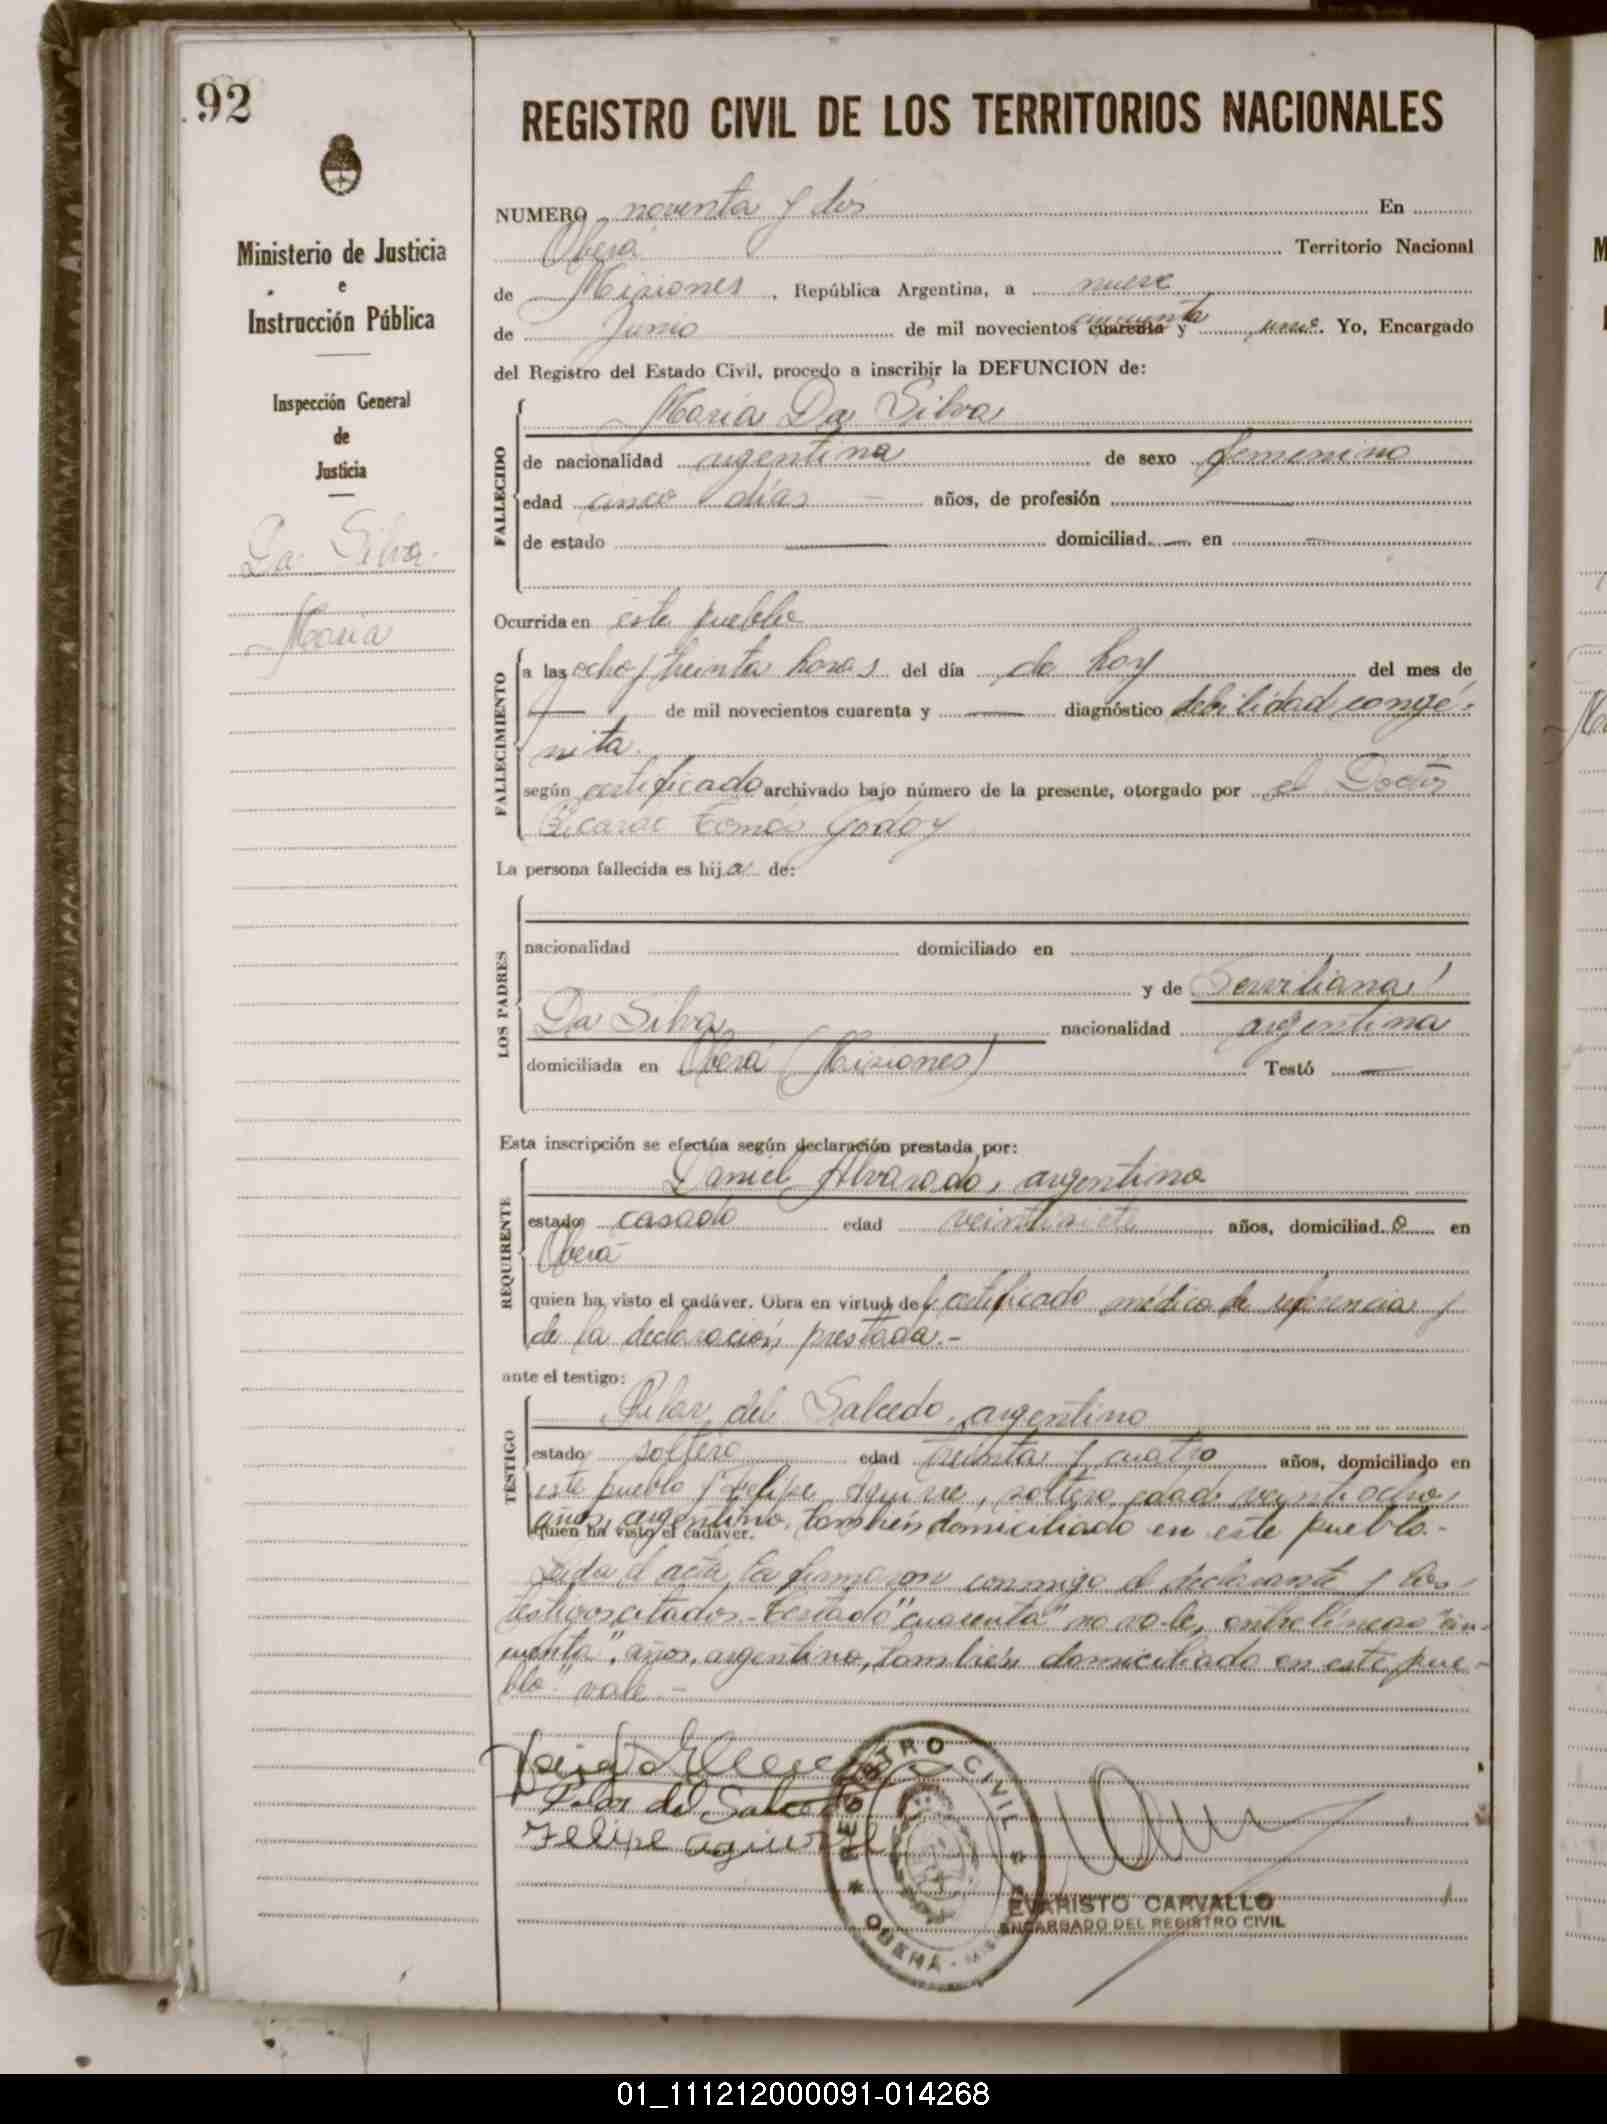 92
Ministerio de Justicia
e
Instrucción Pública
Inspección General
de
Justicia
Da Silva
Maria
REGISTRO CIVIL DE LOS TERRITORIOS NACIONALES
NUMERO noventa y dos En
Oberá Territorio Nacional
de Misiones, República Argentina, a nueve
de Junio de mil novecientos cuarenta cincuenta y uno. Yo, Encargado
del Registro del Estado Civil, procedo a inscribir la DEFUNCION de:
FALLECIDO
Maria Da Silva
de nacionalidad argentina de sexo femenino
edad cinco días — años, de profesión —
de estado — domiciliad — en —
Ocurrida en este pueblo
FALLECIMIENTO
a las ocho y treinta horas del día de hoy del mes de
— de mil novecientos cuarenta y — diagnóstico debilidad congé-
nita.
según certificado archivado bajo número de la presente, otorgado por el Doctor
Ricardo Tomás Godoy
La persona fallecida es hija de:
LOS PADRES
nacionalidad domiciliado en
y de Serviliana
Da Silva nacionalidad argentina
domiciliada en Oberá (Misiones) Testó —
Esta inscripción se efectúa según declaración prestada por:
REQUIRENTE
Daniel Alvarado, argentino
estado casado edad veintisiete años, domiciliado en
Oberá
quien ha visto el cadáver. Obra en virtud del certificado médico de referencia y
de la declaración prestada.-
ante el testigo:
TESTIGO
Pilar del Salcedo, argentino
estado soltero edad treinta y cuatro años, domiciliado en
este pueblo y Felipe Aguirre, soltero, edad veintiocho
años, argentino, también domiciliado en este pueblo.-
quien ha visto el cadáver.
Leída el acta, la firmaron conmigo el declarante y los
testigos citados.- Testado "cuarenta" no vale, entre líneas "cin-
cuenta", "años, argentino, también domiciliado en este pue-
blo" vale.-
Pilar del Salcedo
Felipe Aguirre
REGISTRO CIVIL
OBERÁ - MS
EVARISTO CARVALLO
ENCARGADO DEL REGISTRO CIVIL
01_111212000091-014268